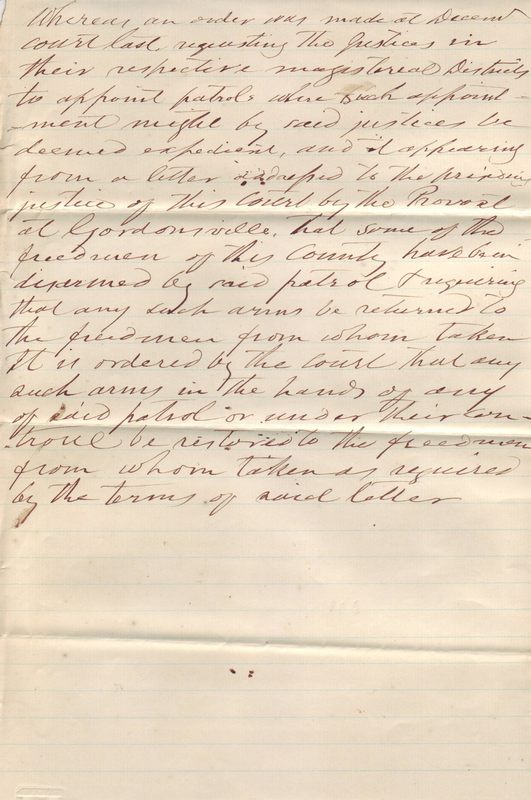 Whereas an order was made at Decem
court last, requesting the Justices in
their respective magisterial Districts
to appoint patrols where such appoint-
-ment might by said justices be
deemed expedient, and it appearing
from a letter addressed to the presiding
justice of this court by the Provost
at Gordonsville, that some of the
freedmen of this County have been
disarmed by said patrol & requiring
that any such arms be returned to
the freedmen from whom taken
It is ordered by the court that any
such arms in the hands of any
of said patrol or under their con
troul be restored to the freedmen
from whom taken as required
by the terms of said letter